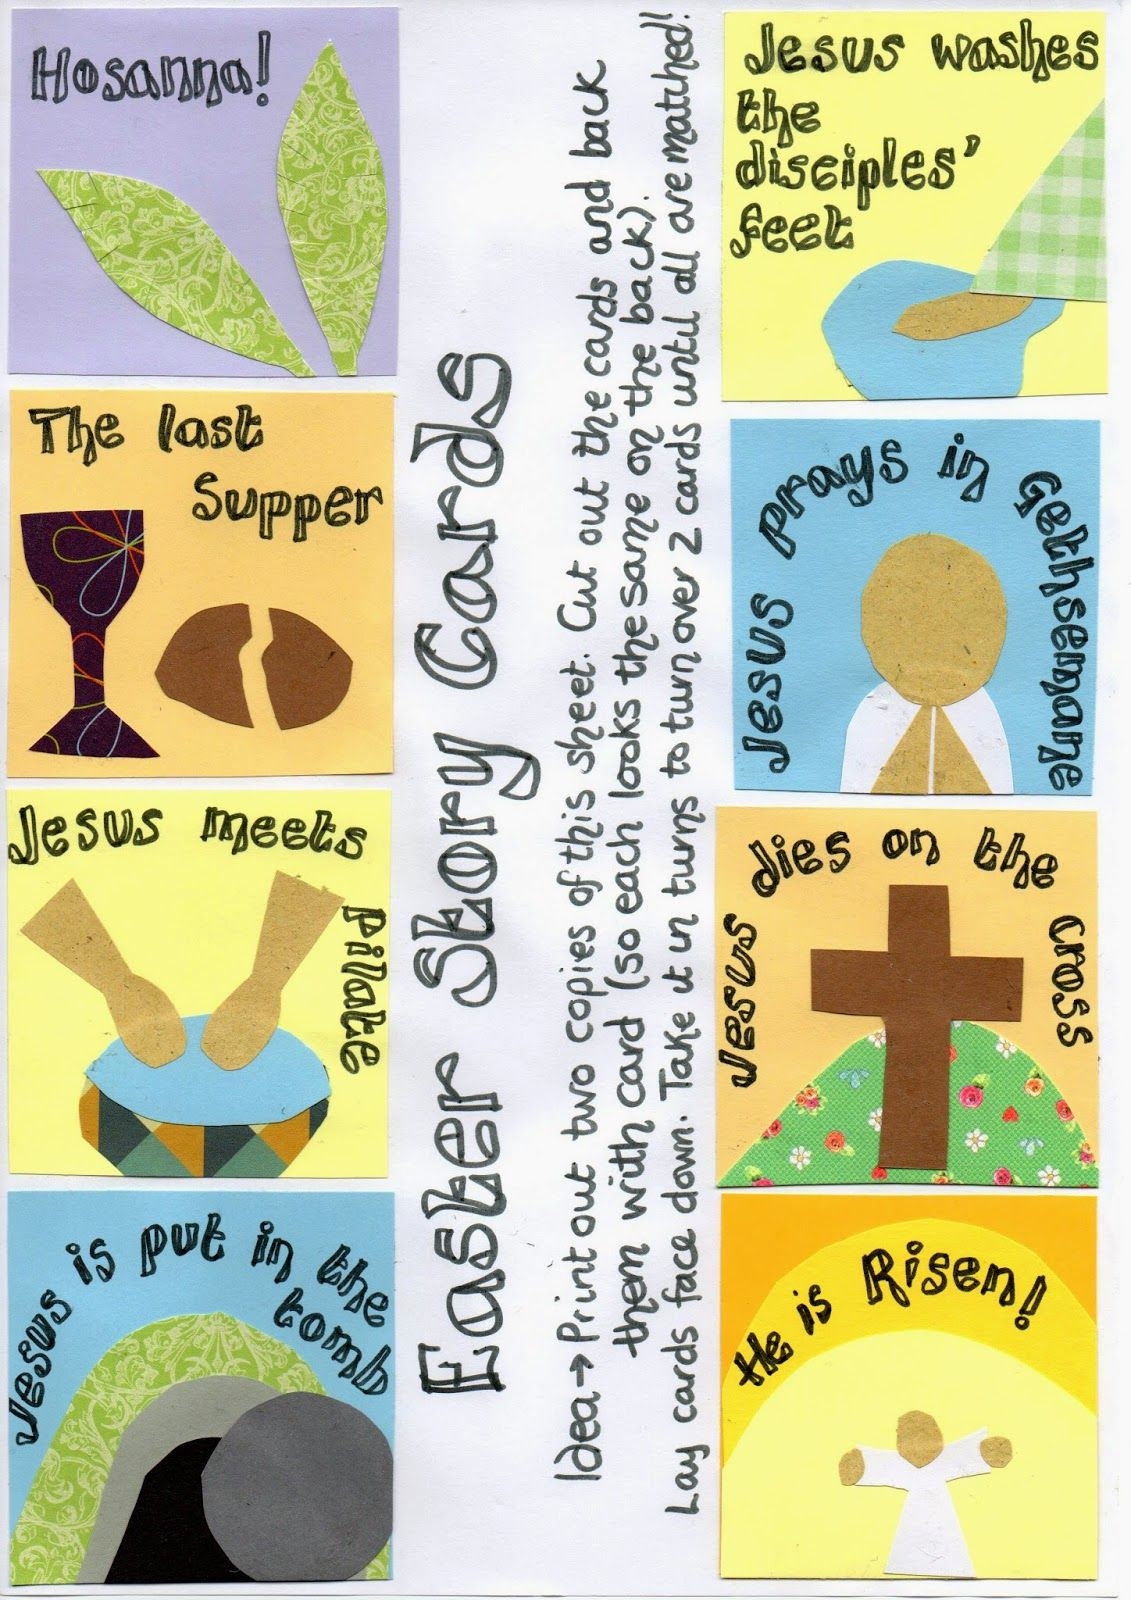 Hosanna!
Jesus washes
the
disciples'
feet
The last
Supper
Jesus prays in Gethsemane
Jesus meets Pilate
Jesus dies on the cross
Jesus is put in the
tomb
He is Risen!
Easter Story Cards
Idea → Print out two copies of this sheet. Cut out the cards and back
them with card (so each looks the same on the back).
Lay cards face down. Take it in turns to turn over 2 cards until all are matched!